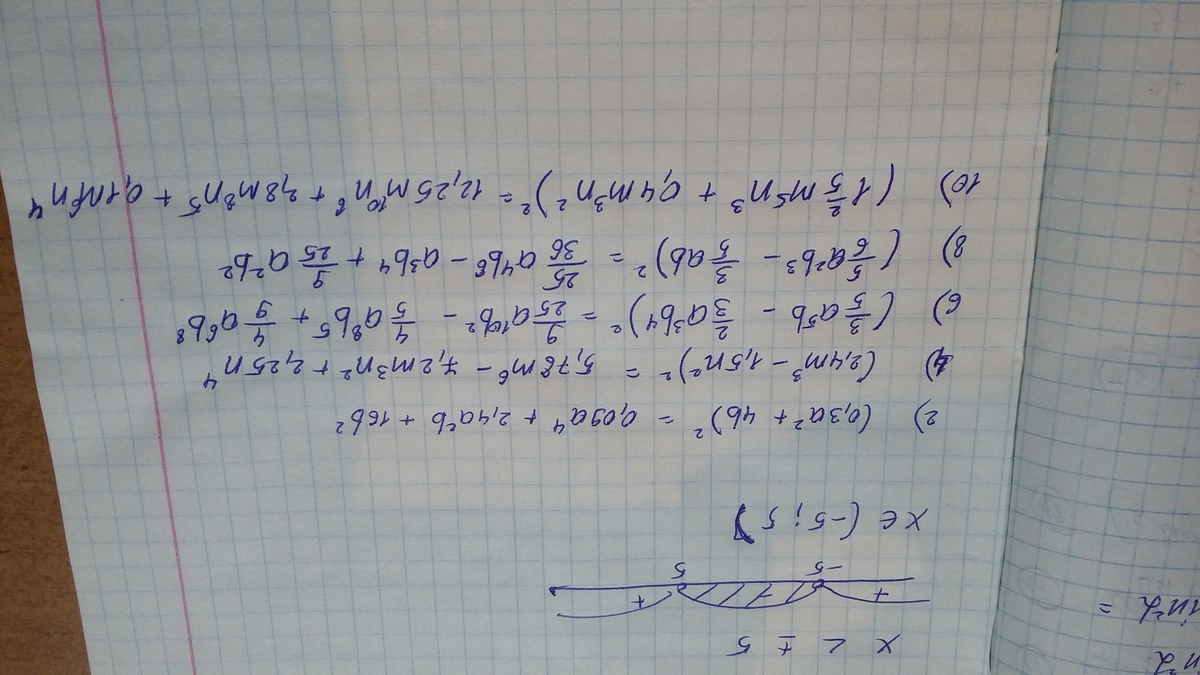 x < ± 5
+ - +
-5 5
x ∈ (-5; 5)
2) (0,3a² + 4b)² = 0,09a⁴ + 2,4a²b + 16b²
4) (2,4m³ - 1,5n²)² = 5,78m⁶ - 7,2m³n² + 2,25n⁴
6) (3/5 a⁵b - 2/3 a³b⁴)² = 9/25 a¹⁰b² - 4/5 a⁸b⁵ + 4/9 a⁶b⁸
8) (5/6 a²b³ - 3/5 ab)² = 25/36 a⁴b⁶ - a³b⁴ + 9/25 a²b²
10) (1 2/5 m⁵n³ + 0,4m³n²)² = 12,25m¹⁰n⁶ + 2,8m⁸n⁵ + 0,1m⁶n⁴